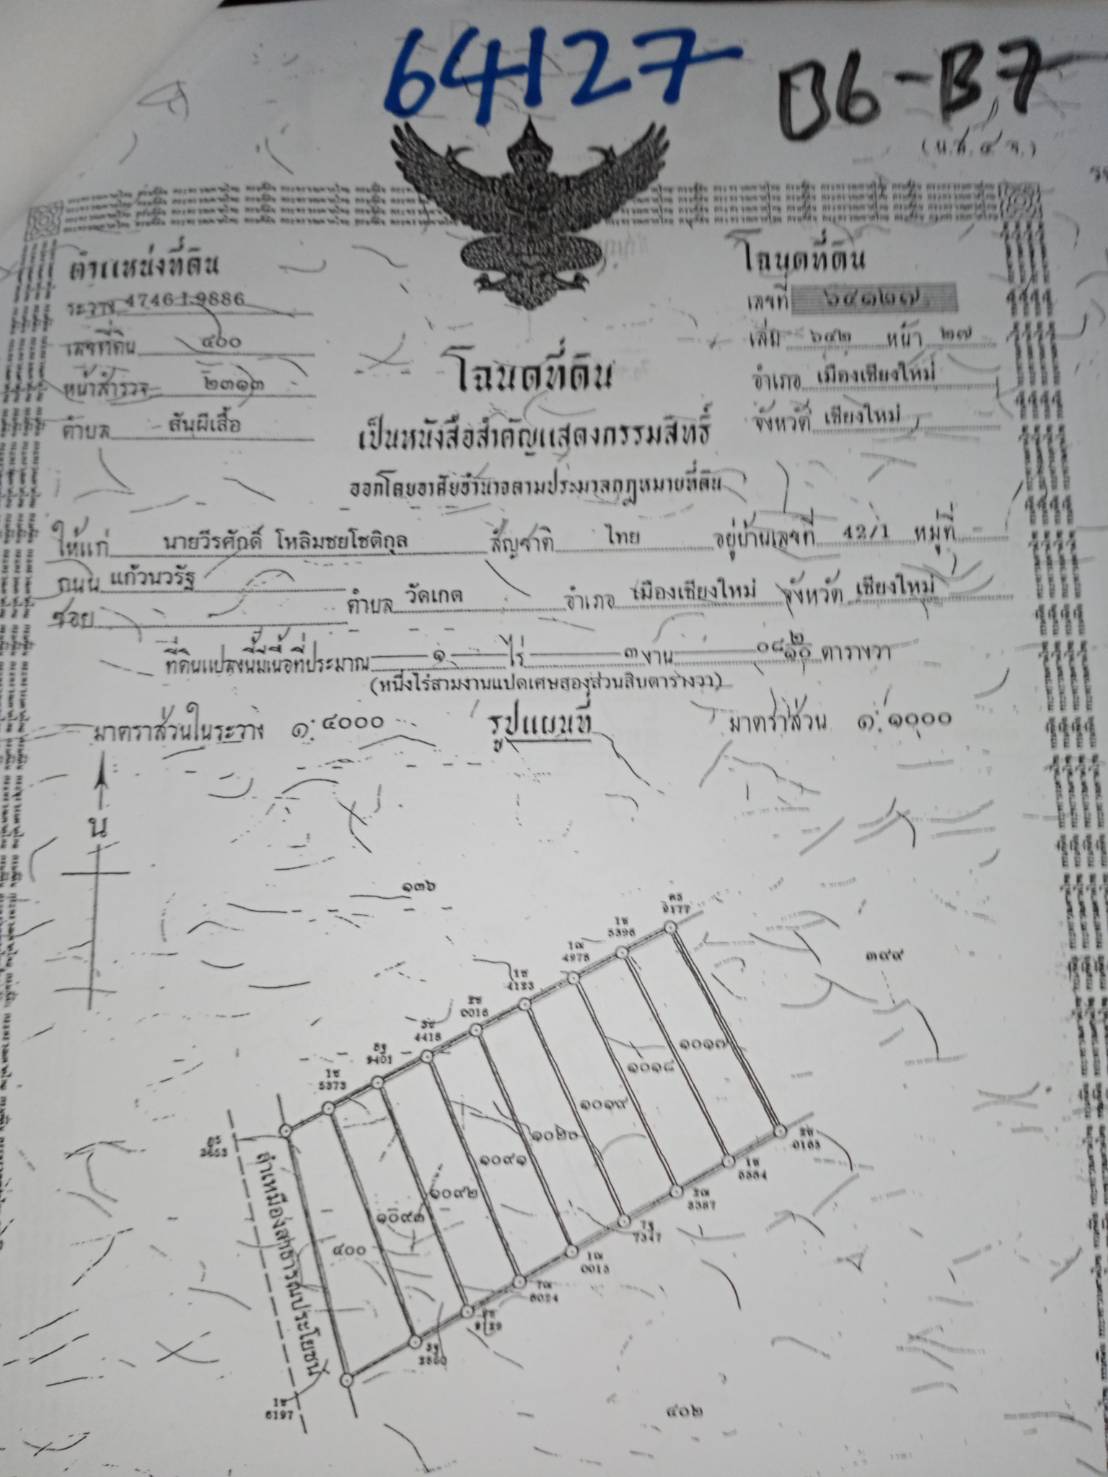 64127 B6-B7
(น.ส.๔ จ.)
ตำแหน่งที่ดิน
ระวาง 4746 I 9886
เลขที่ดิน ๔๐๐
หน้าสำรวจ ๒๓๑๓
ตำบล สันผีเสื้อ
โฉนดที่ดิน
เลขที่ ๖๔๑๒๗
เล่ม ๖๔๒ หน้า ๒๗
อำเภอ เมืองเชียงใหม่
จังหวัด เชียงใหม่
โฉนดที่ดิน
เป็นหนังสือสำคัญแสดงกรรมสิทธิ์
ออกโดยอาศัยอำนาจตามประมวลกฎหมายที่ดิน
ให้แก่ นายวีรศักดิ์ โหลิมชยโชติกุล สัญชาติ ไทย อยู่บ้านเลขที่ 42/1 หมู่ที่
ถนน แก้วนวรัฐ
ซอย ตำบล วัดเกต อำเภอ เมืองเชียงใหม่ จังหวัด เชียงใหม่
ที่ดินแปลงนี้มีเนื้อที่ประมาณ ๑ ไร่ ๓ งาน ๐๘ ๒/๑๐ ตารางวา
(หนึ่งไร่สามงานแปดเศษสองส่วนสิบตารางวา)
มาตราส่วนในระวาง ๑:๔๐๐๐ รูปแผนที่ มาตราส่วน ๑:๑๐๐๐
น
๑๓๖
9177
1ช
5396
1ฌ
4978
1ช
4123
2ช
0016
4418
9401
1ช
5373
๓๙๙
๑๐๑๗
๑๐๑๘
๑๐๑๙
๑๐๒๐
๑๐๙๑
๑๐๙๒
๑๐๙๓
๔๐๐
ลำเหมืองสาธารณประโยชน์
0165
1ช
5384
3387
7347
0015
6024
1ช
6197
๔๐๒